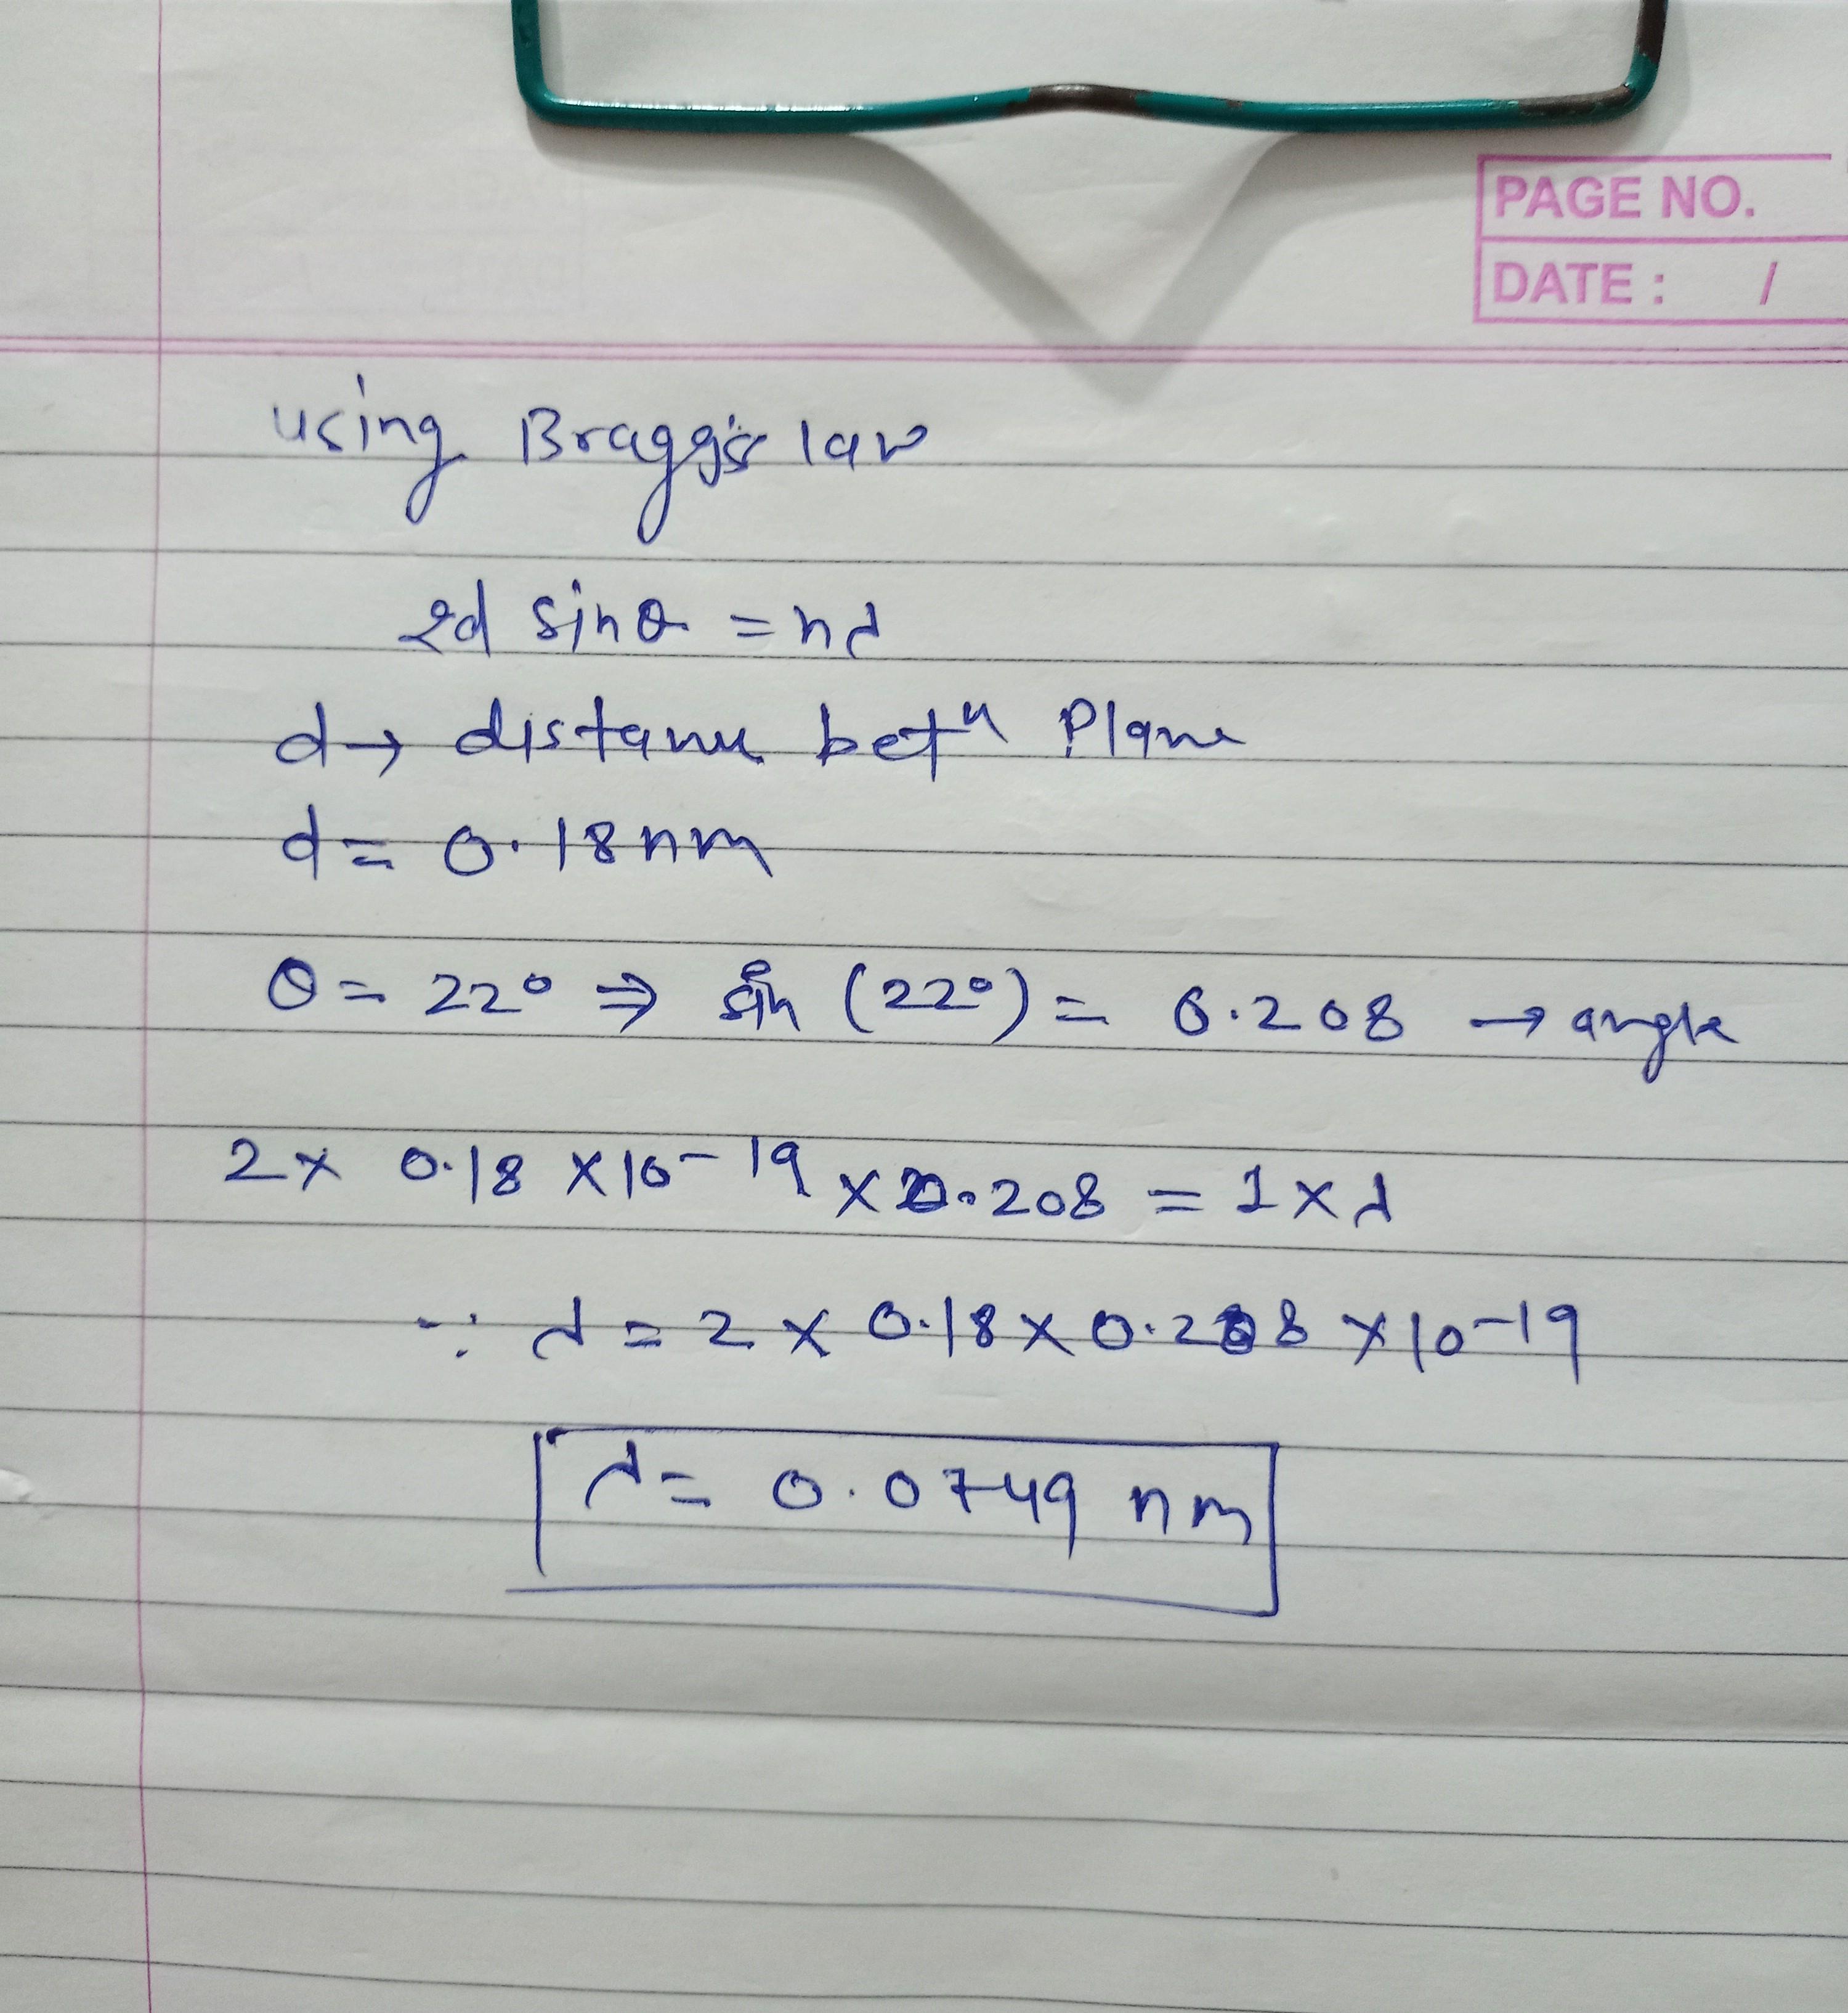 PAGE NO.
DATE : /
using Bragg's law
2d sinθ = nλ
d → distance betⁿ Plane
d = 0.18nm
θ = 22° ⇒ sin (22°) = 0.208 → angle
2 x 0.18 x 10⁻¹⁹ x 0.208 = 1 x λ
∵ λ = 2 x 0.18 x 0.208 x 10⁻¹⁹
λ = 0.0749 nm